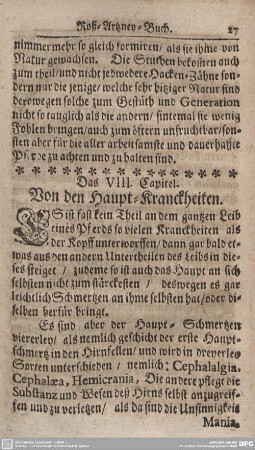 Roß-Artzney-Buch. 27
nimmermehr so gleich formiren / als sie ihme von
Natur gewachsen. Die Stutten bekom̃en auch
zum theil / und nicht jedwedere Hacken-Zähne son-
dern nur die jenige / welche sehr hitziger Natur sind
derowegen solche zum Gestüth und Generation
nicht so tauglich als die andern / sintemal sie wenig
Fohlen bringen / auch zum öftern unfruchtbar / son-
sten aber für die aller arbeitsamste und dauerhafte
Pferde zu achten und zu halten sind.
Das VIII. Capitel.
Von den Haupt-Kranckheiten.
ES ist fast kein Theil an dem gantzen Leib
eines Pferds so vielen Kranckheiten als
der Kopff unterworffen / dann gar bald et-
was aus den andern Untertheilen des Leibs in die-
ses steiget / zudeme so ist auch das Haupt an sich
selbsten nicht zum stärckesten / deswegen es gar
leichtlich Schmertzen an ihme selbsten hat / oder di-
selben herfür bringt.
Es sind aber der Haupt-Schmertzen
viererley / als nemlich geschicht der erste Haupt-
schmertz in den Hirnfellen / und wird in dreyerley
Sorten unterschieden / nemlich; Cephalalgia,
Cephalæa, Hemicrania, Die andere pflegt die
Substanz und Wesen deß Hirns selbst anzugreif-
fen und zu verletzen / als da sind die Unsinnigkeit
Mania,